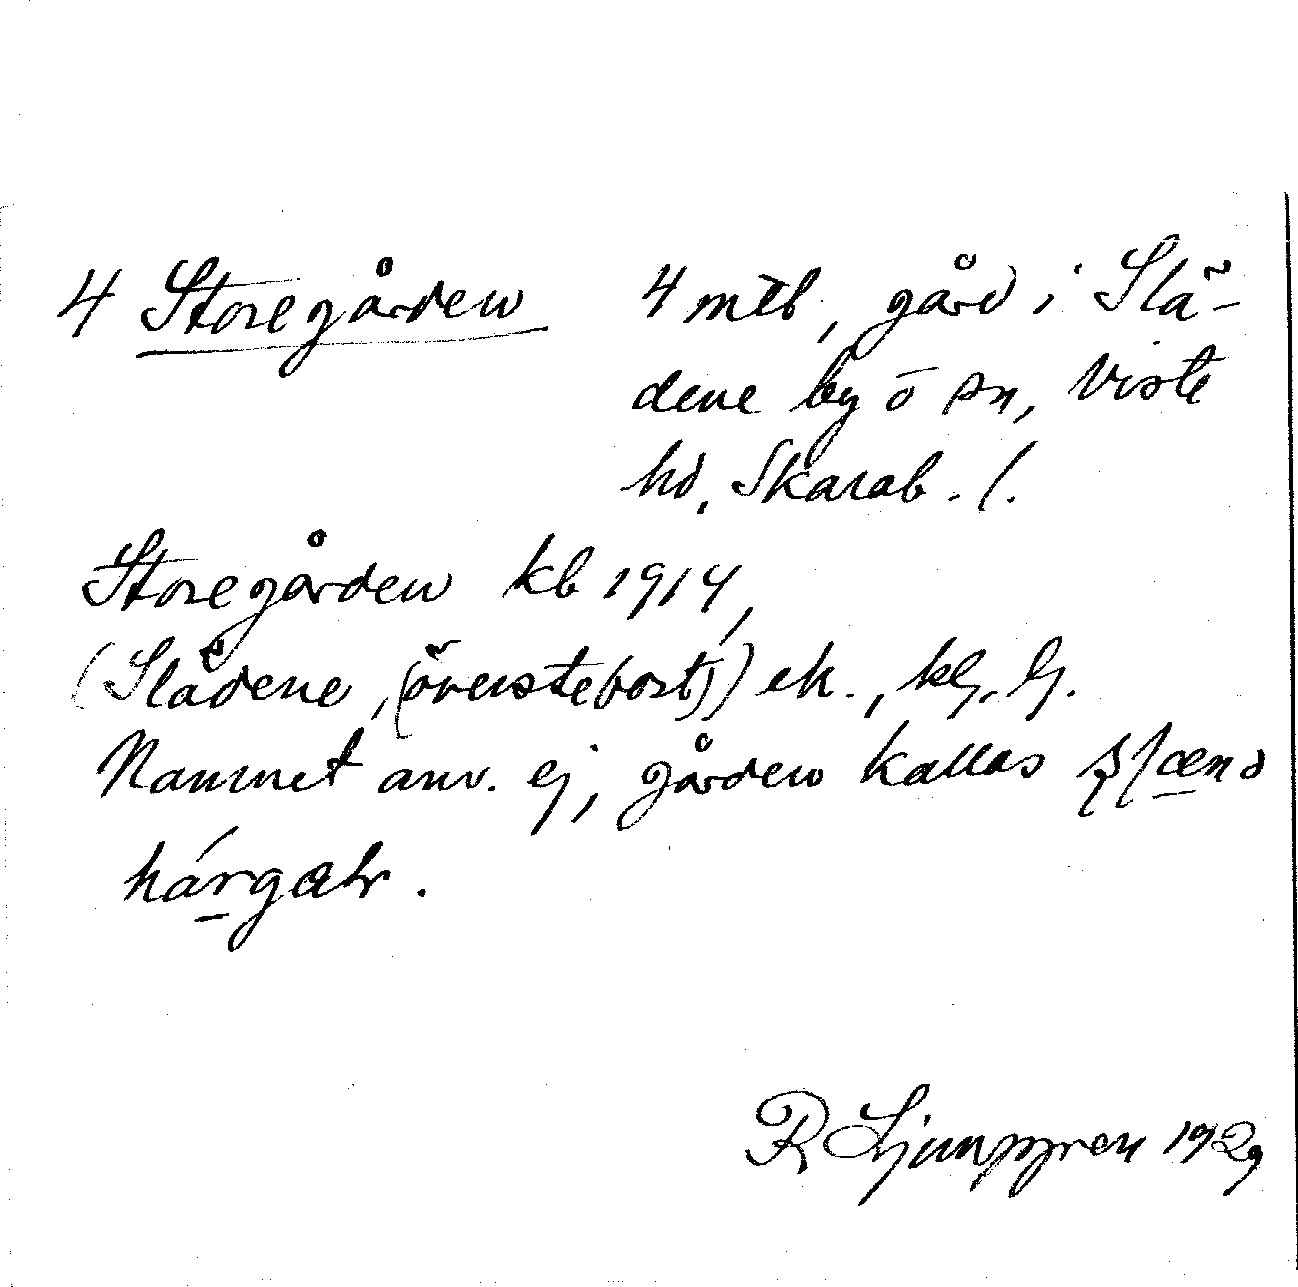 4 Storegården 4 mtl, gård i Slä-
dene by o sn, Viste
hd, Skarab. l.
Storegården kb 1914,
(Slädene, (överstebost.)) ek., kg. lj.
Namnet anv. ej, gården kallas
R Ljunggren 1929